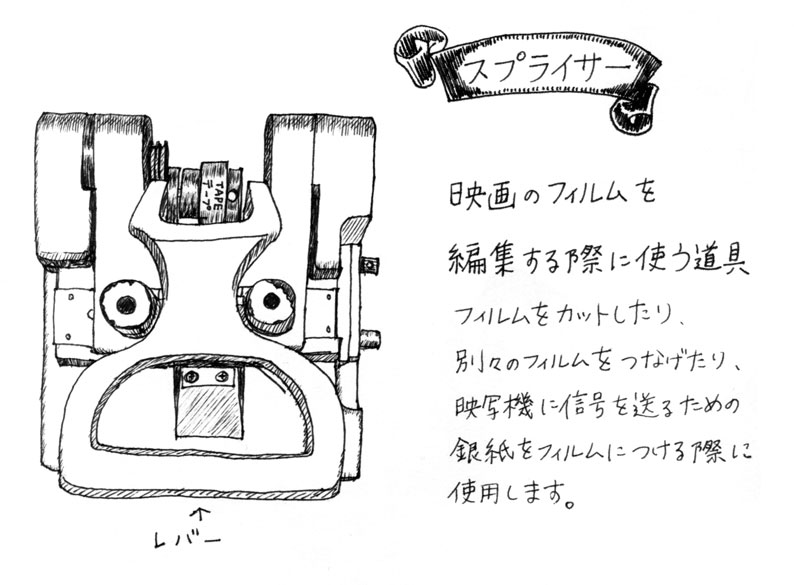 スプライサー
TAPE
テープ
映画のフィルムを
編集する際に使う道具
フィルムをカットしたり、
別々のフィルムをつなげたり、
映写機に信号を送るための
銀紙をフィルムにつける際に
使用します。
レバー